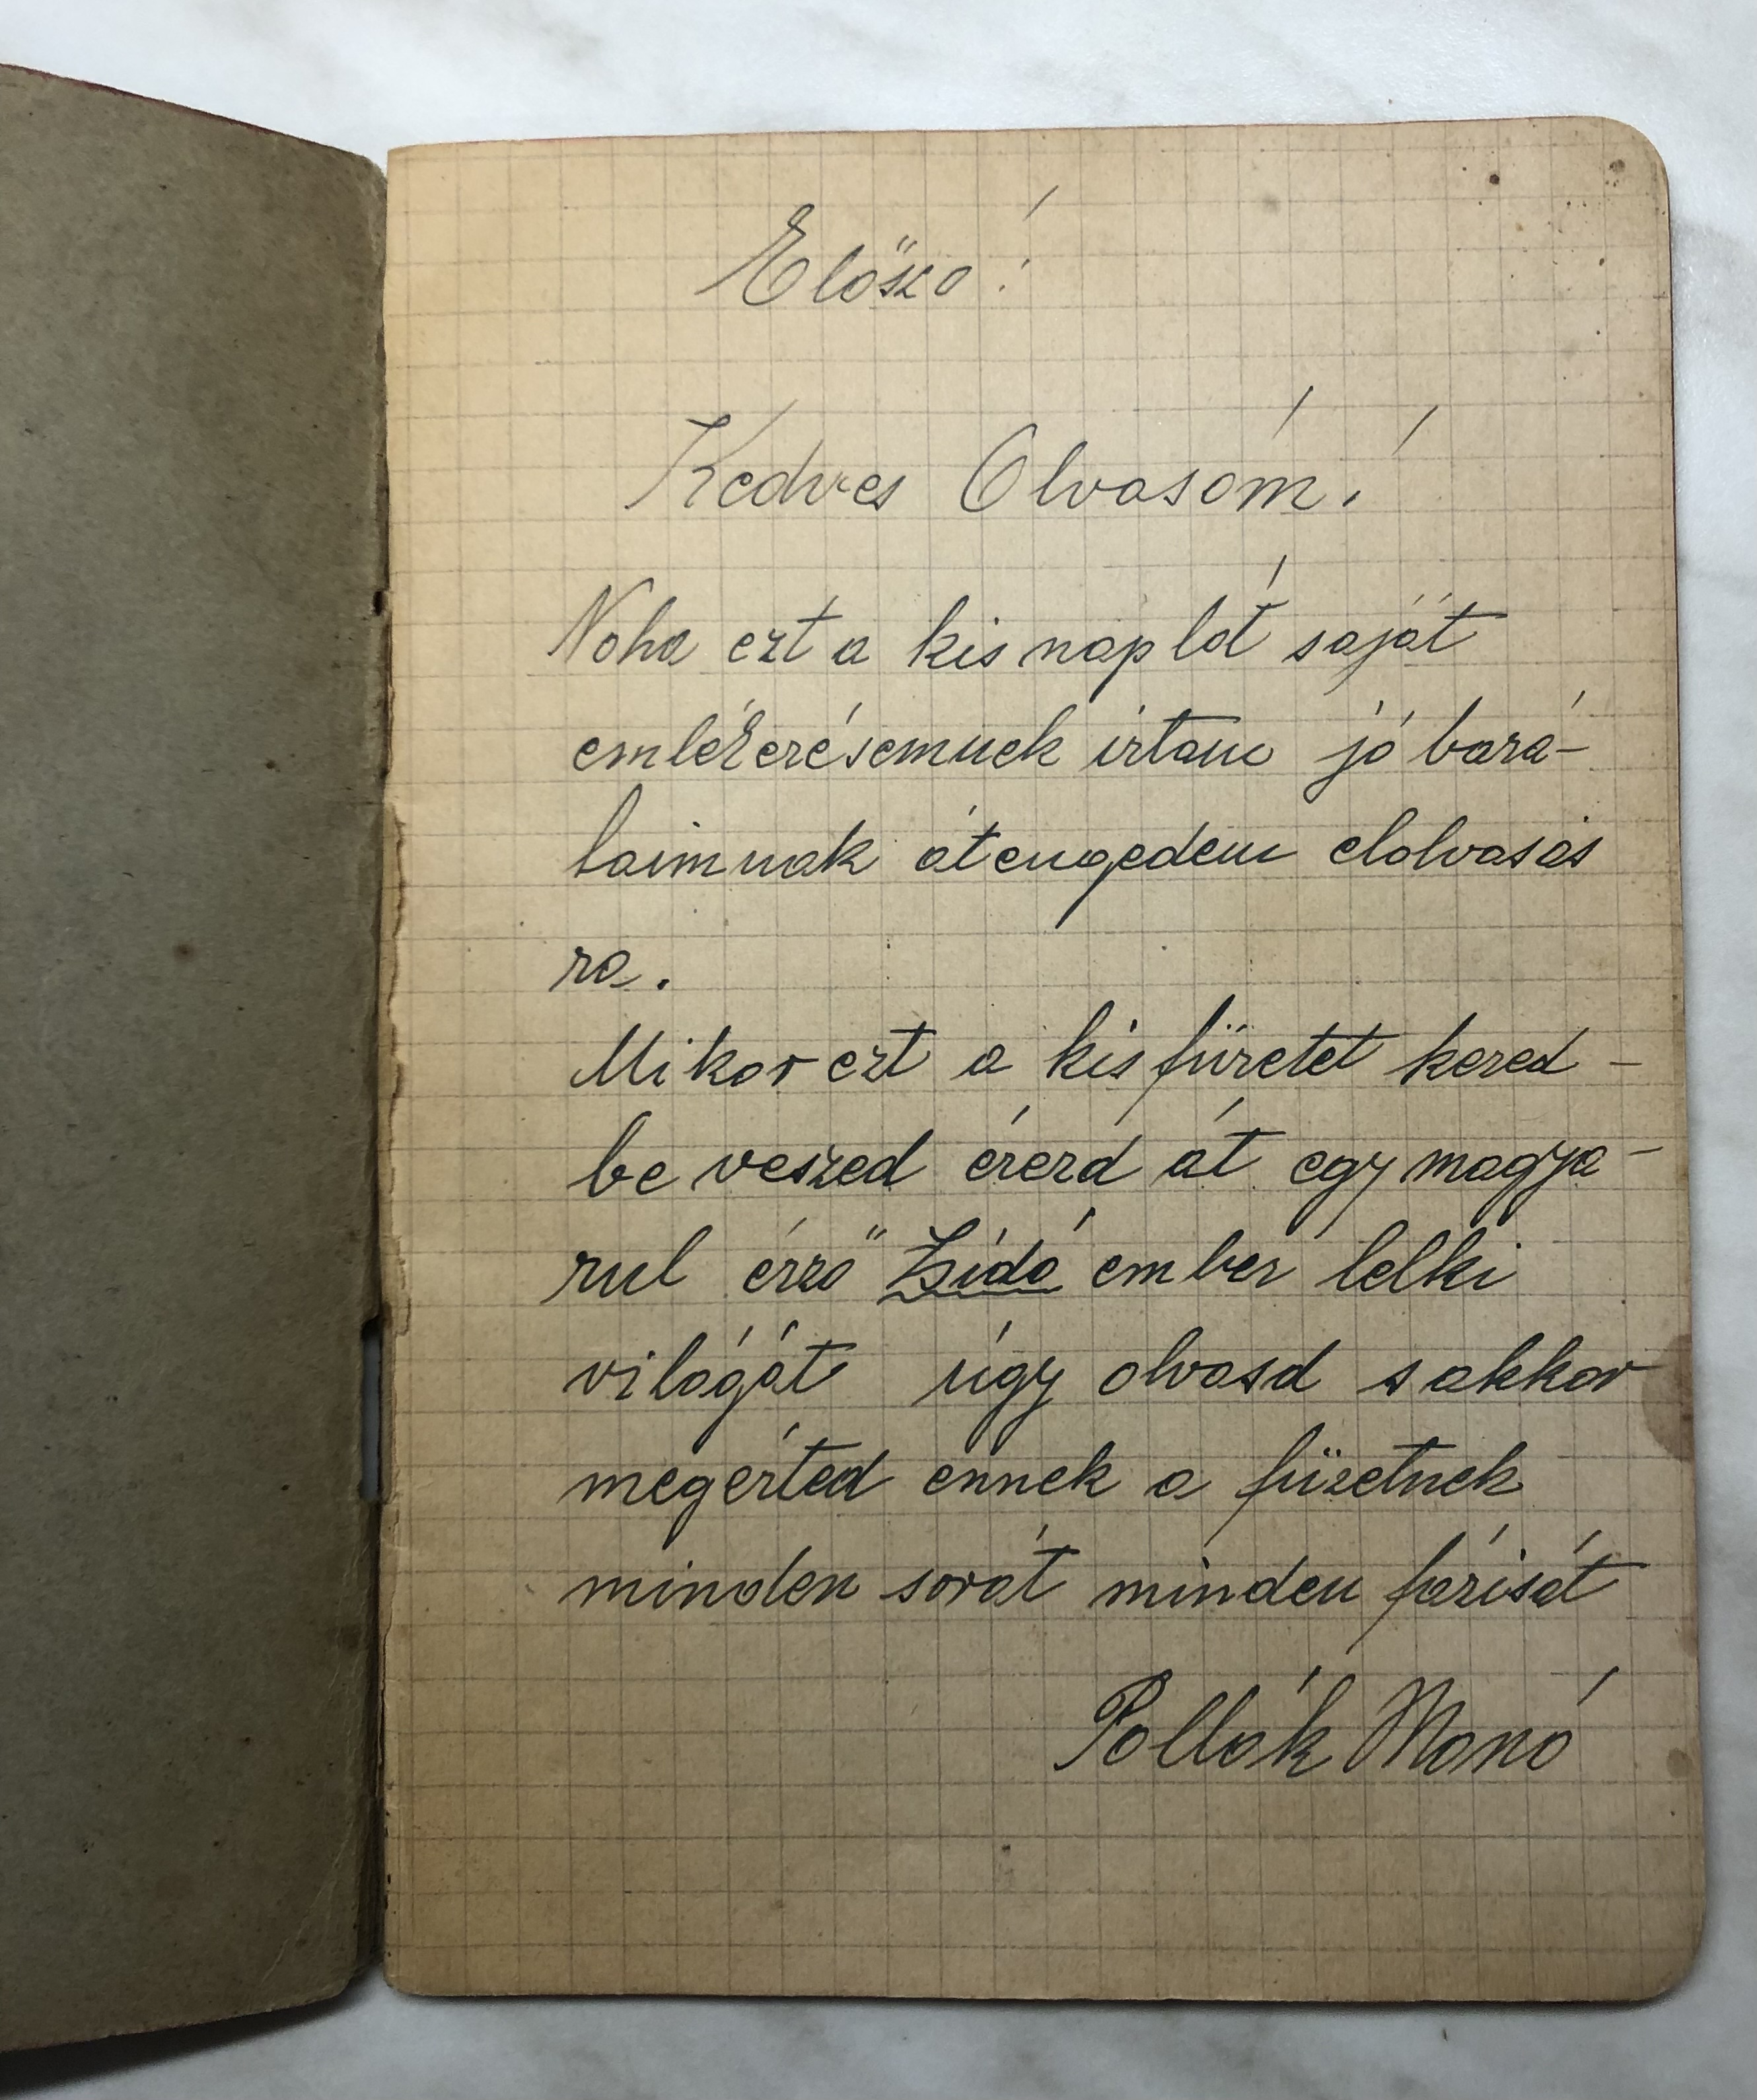 Előszó!
Kedves Olvasóm!
Noha ezt a kis naplót saját
emlékezésemnek írtam jó bará-
taimnak átengedem elolvasás
ra.
Mikor ezt a kis füzetet kezed-
be veszed érezd át egy magya-
rul érző Zsidó ember lelki
világát úgy olvasd s akkor
megérted ennek a füzetnek
minden sorát minden fázisát
Pollák Manó